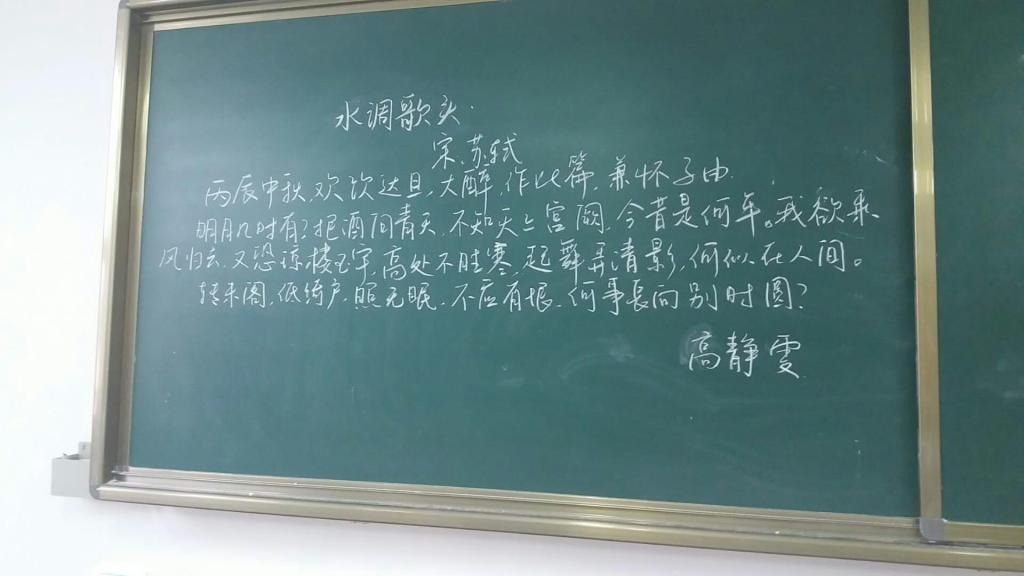 水调歌头.
宋.苏轼
丙辰中秋,欢饮达旦,大醉,作此篇,兼怀子由.
明月几时有?把酒问青天,不知天上宫阙,今昔是何年。我欲乘
风归去,又恐琼楼玉宇,高处不胜寒,起舞弄清影,何似在人间。
转朱阁,低绮户,照无眠,不应有恨,何事长向别时圆?
高静雯